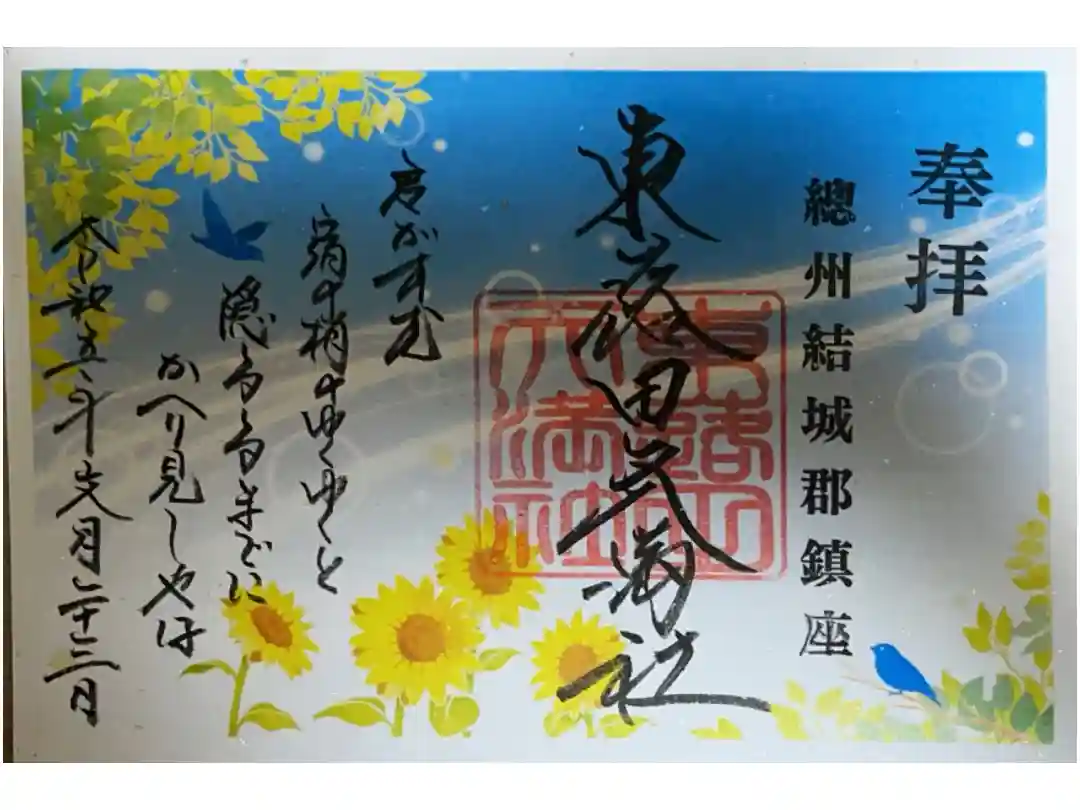 奉拝
總州結城郡鎮座
東蕗田天満社
東蕗田天満社
君がすむ
宿の梢のゆくゆくと
隠るるまでに
かへり見しやは
令和五年文月二十三日